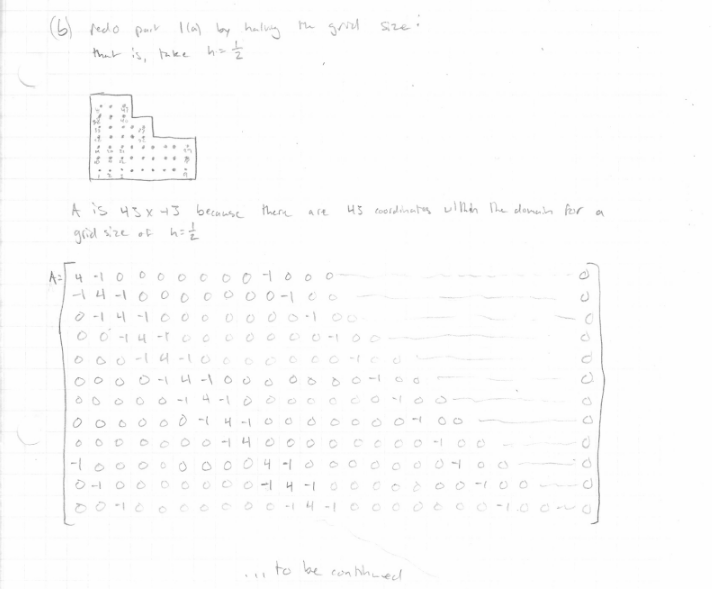 (b) redo part 1(a) by halving the grid size:
that is, take h = 1/2
A is 43 x 43 because there are 43 coordinates within the domain for a
grid size of h = 1/2
A=
4 -1 0 0 0 0 0 0 0 -1 0 0 0 0
-1 4 -1 0 0 0 0 0 0 0 -1 0 0 0
0 -1 4 -1 0 0 0 0 0 0 0 -1 0 0 0
0 0 -1 4 -1 0 0 0 0 0 0 0 -1 0 0 0
0 0 0 -1 4 -1 0 0 0 0 0 0 0 -1 0 0 0
0 0 0 0 -1 4 -1 0 0 0 0 0 0 0 -1 0 0 0
0 0 0 0 0 -1 4 -1 0 0 0 0 0 0 0 -1 0 0 0
0 0 0 0 0 0 -1 4 -1 0 0 0 0 0 0 0 -1 0 0 0
0 0 0 0 0 0 0 -1 4 0 0 0 0 0 0 0 0 -1 0 0 0
-1 0 0 0 0 0 0 0 0 4 -1 0 0 0 0 0 0 0 -1 0 0 0
0 -1 0 0 0 0 0 0 0 -1 4 -1 0 0 0 0 0 0 0 -1 0 0 0
0 0 -1 0 0 0 0 0 0 0 -1 4 -1 0 0 0 0 0 0 0 -1 0 0 0
... to be continued